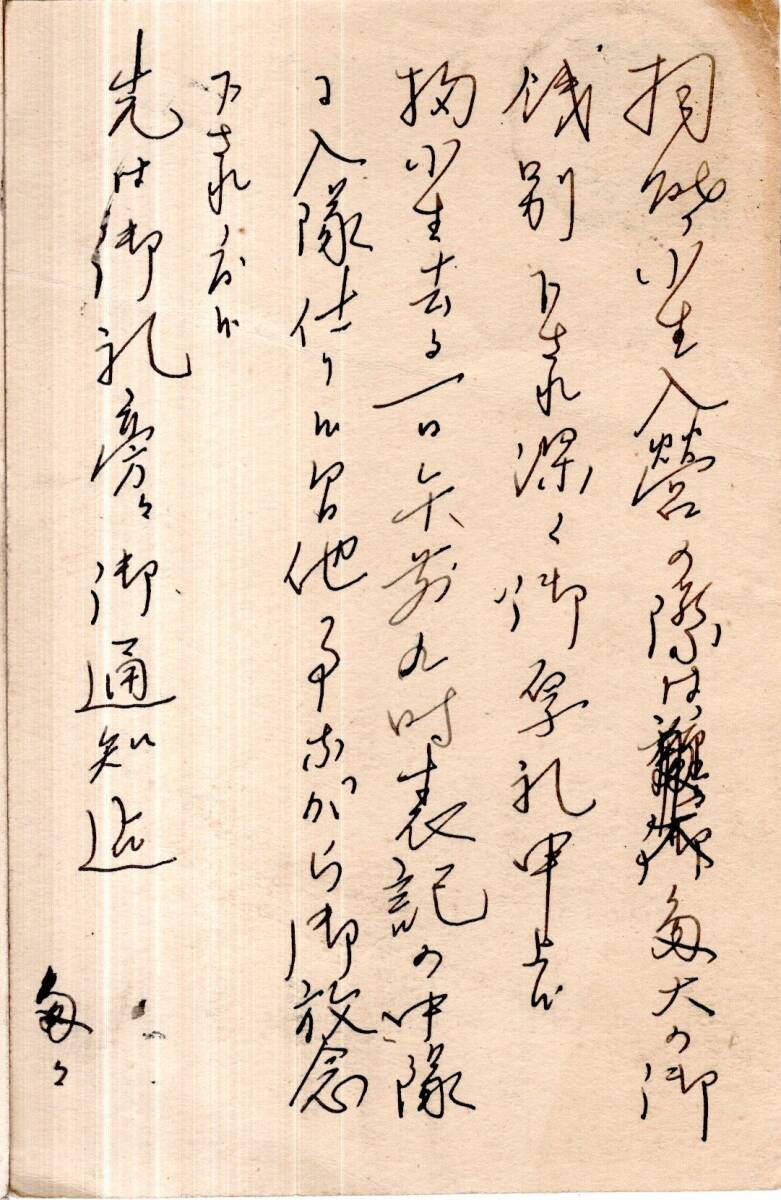 拝啓小生入営の際は多大の御
餞別下され深く御厚礼申上候
拘小生去る一日午前九時表記の中隊
に入隊仕り候間他事ながら御放念
下され度候
先は御礼旁々御通知迄
匆々